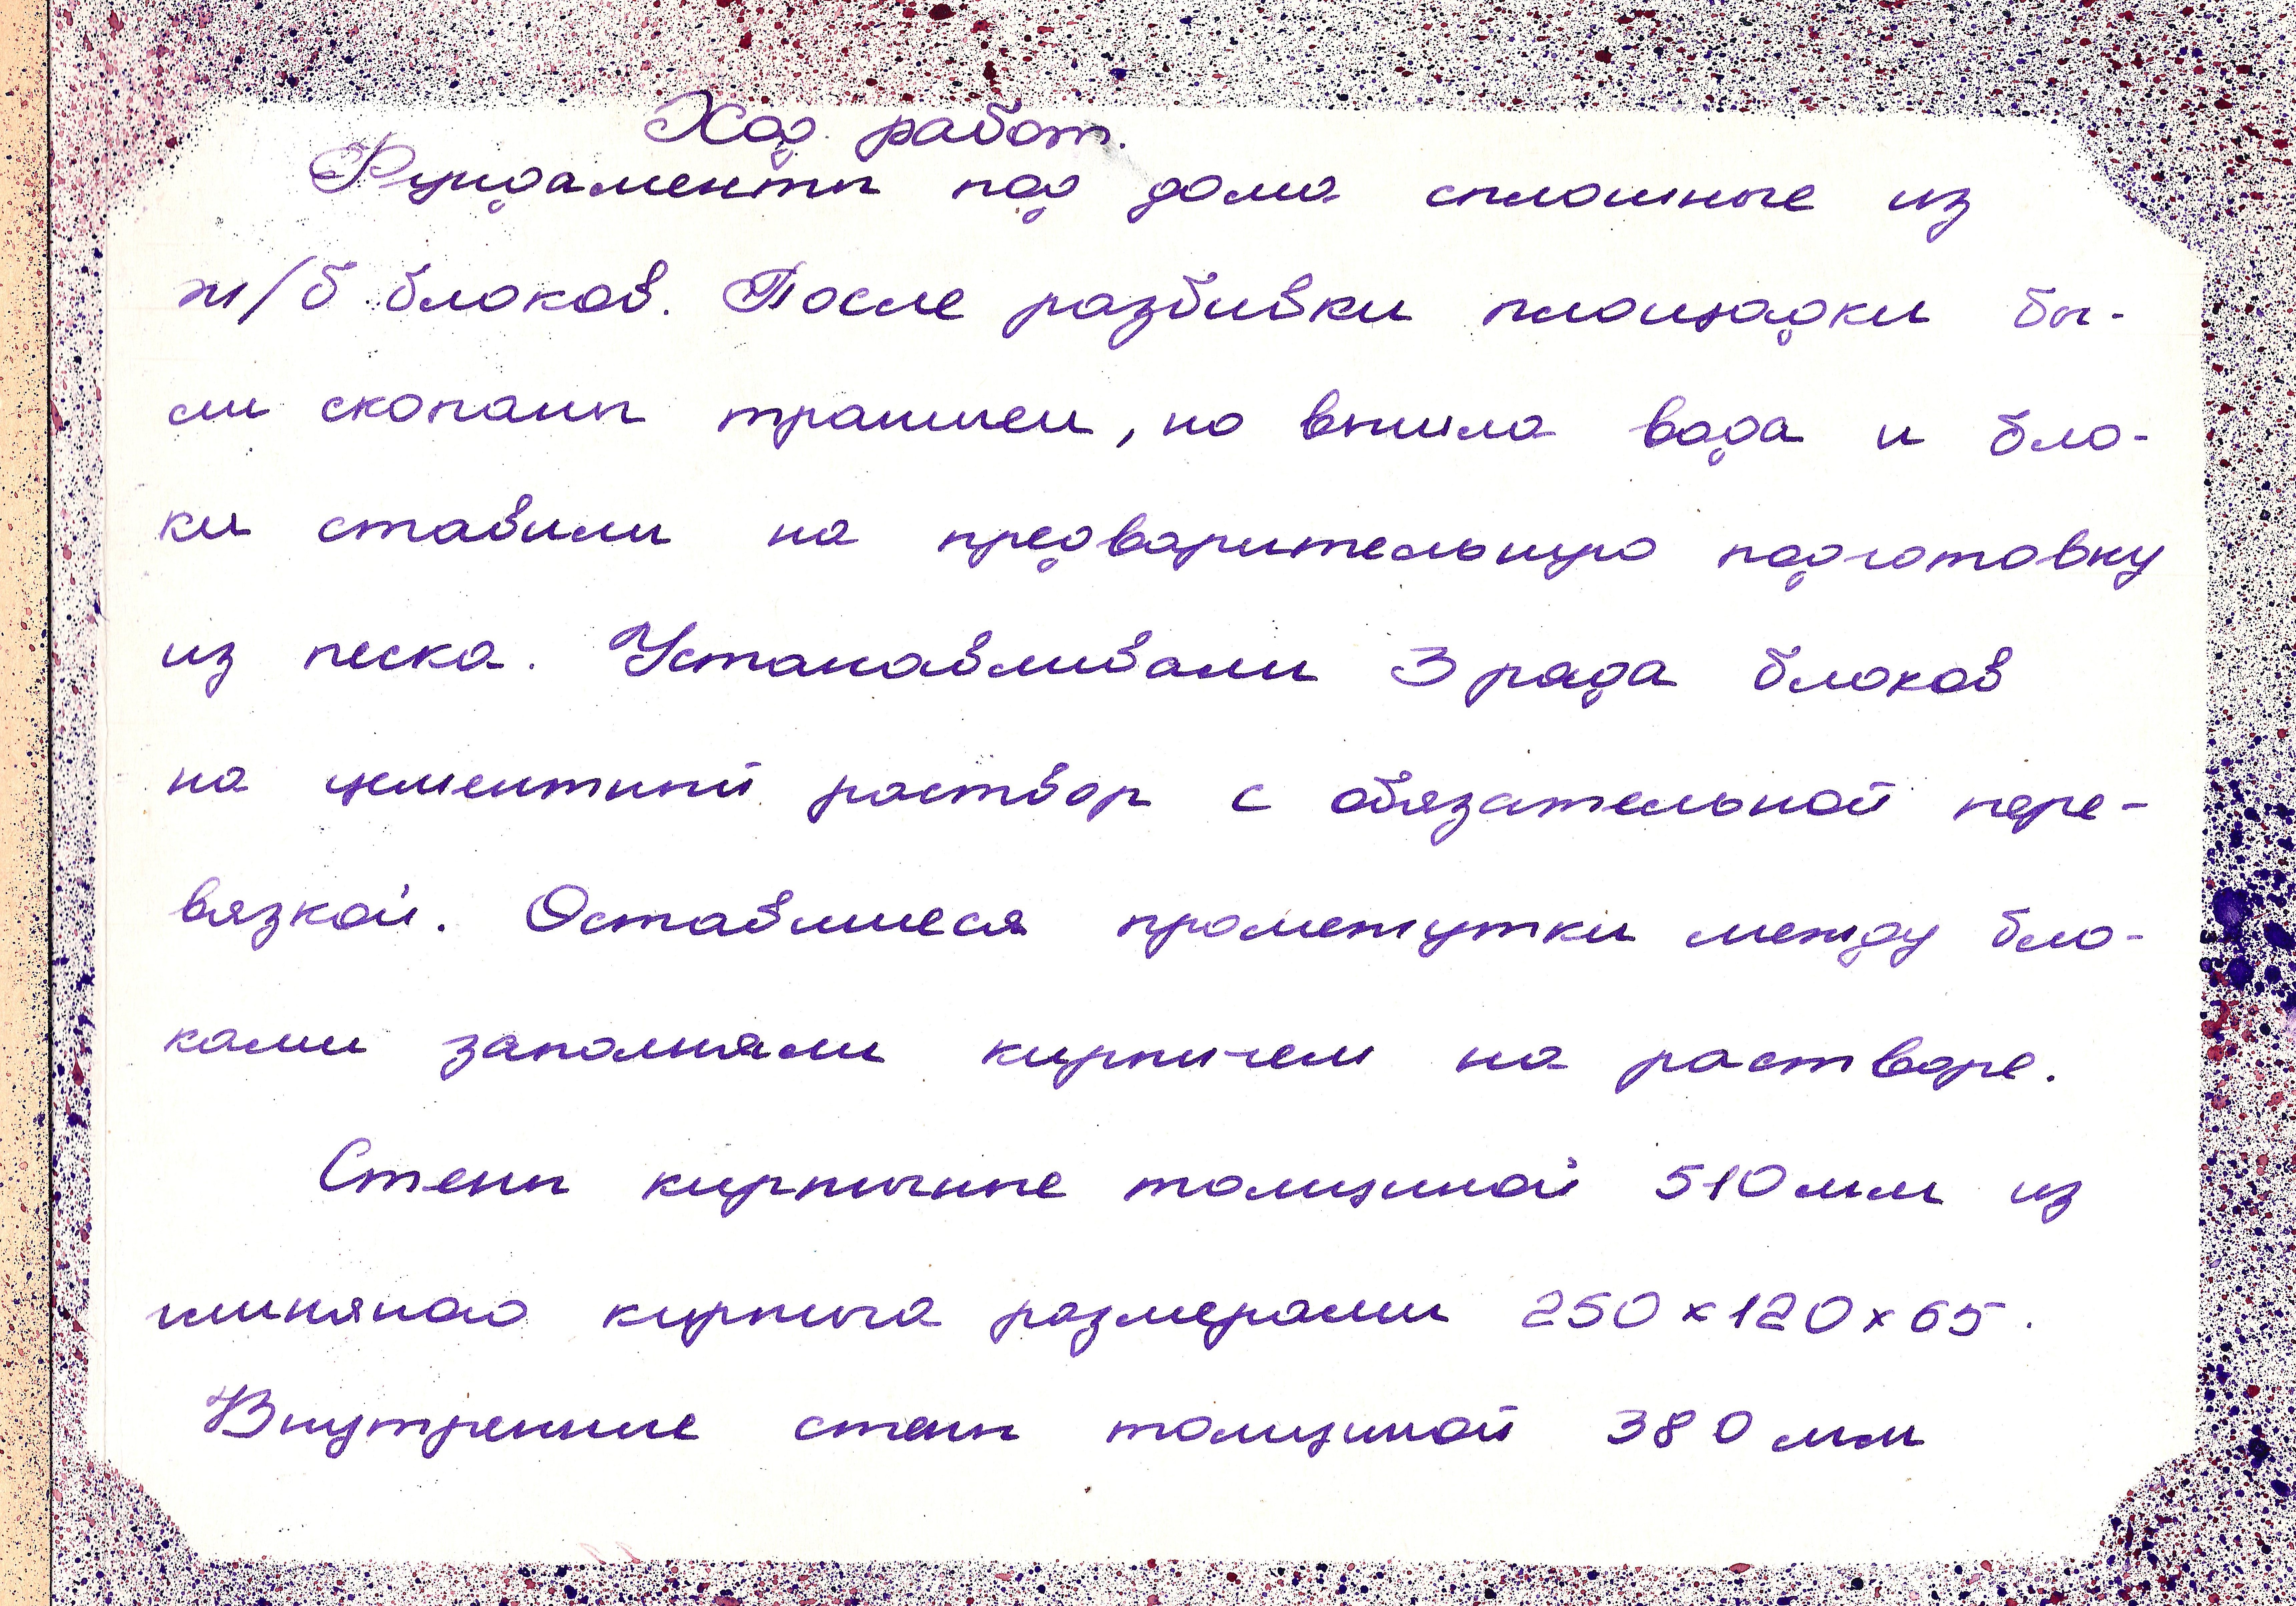 Ход работ.
Фундаменты под дома сплошные из
ж/б блоков. После разбивки площадки бы-
ли скопаны траншеи, но вышла вода и бло-
ки ставили на предварительную подготовку
из песка. Устанавливали 3 ряда блоков
на цементный раствор с обязательной пере-
вязкой. Оставшиеся промежутки между бло-
ками заполняли кирпичем на растворе.
Стены кирпичные толщиной 510 мм из
глиняного кирпича размерами 250 x 120 x 65.
Внутренние стены толщиной 380 мм